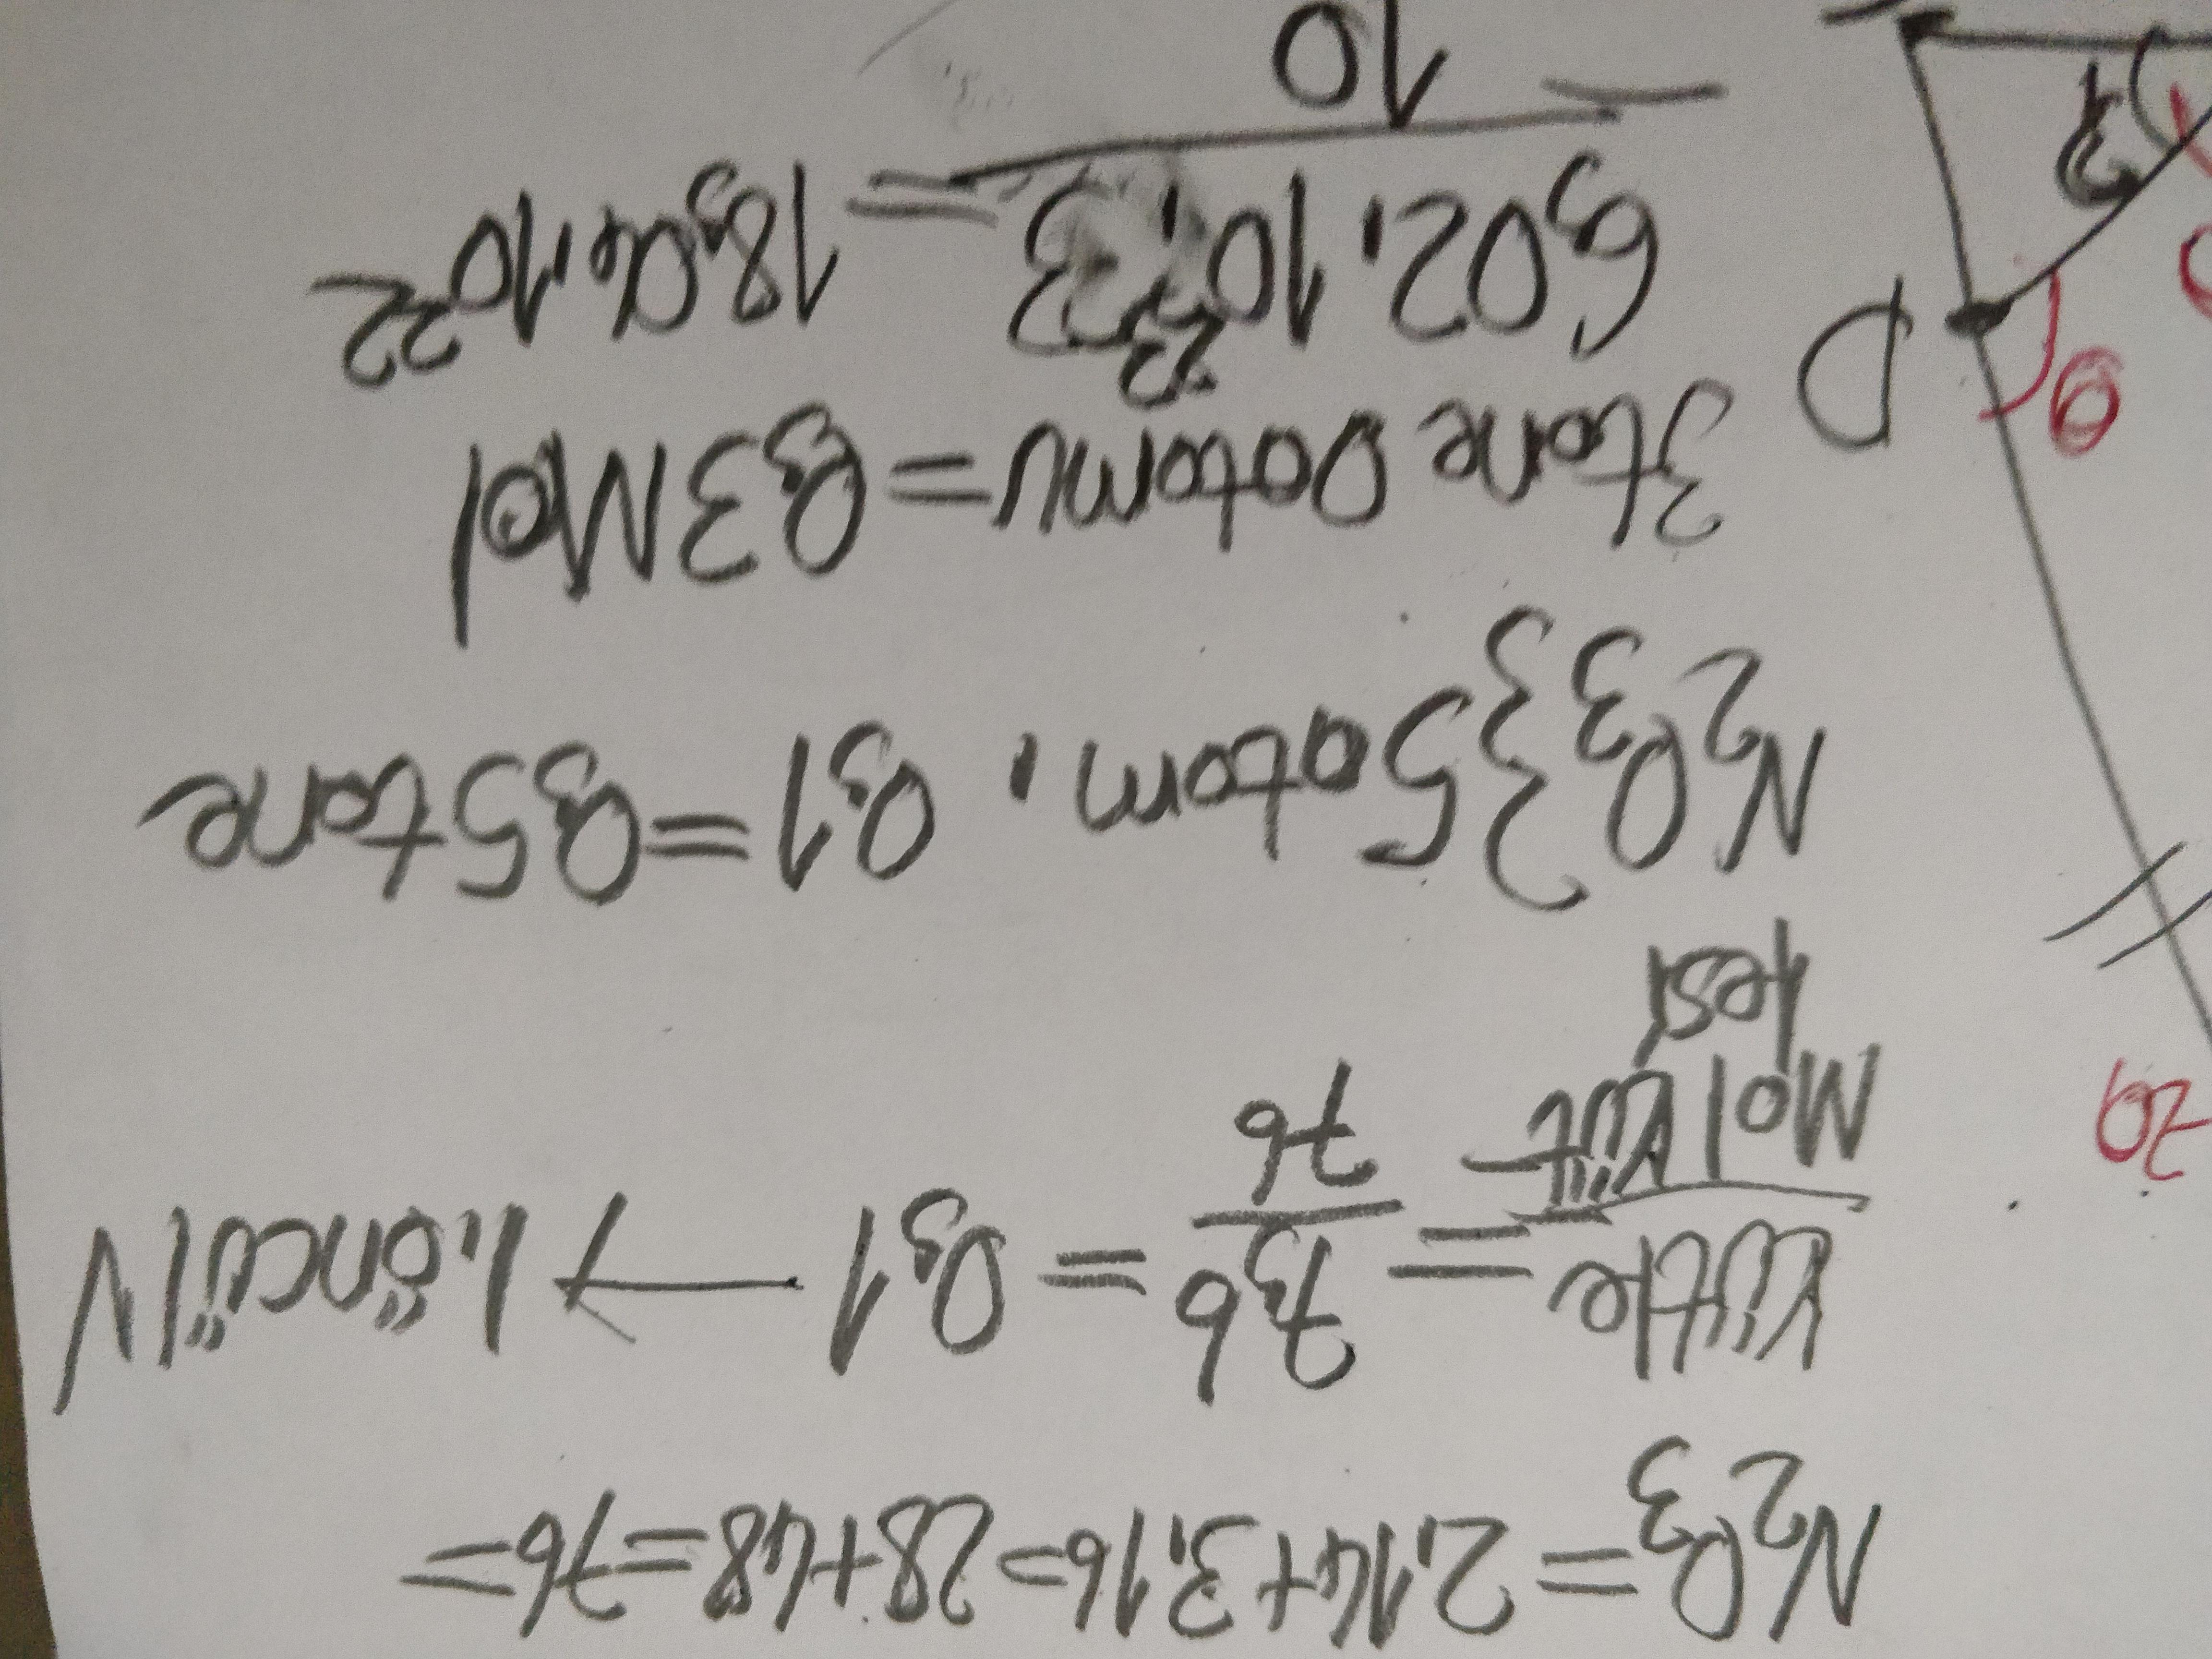 N₂O₃ = 2.14+3.16=28+48=76=
Kütle/Mol Küt-lesi = 7,6/76 = 0,1 → 1.öncülN
N₂O₃}5atom. 0,1=0,5tane
3tane Oatomu=0,3Mol
6,02.10²³.3/10 = 18,06.10²²
D
θ
20